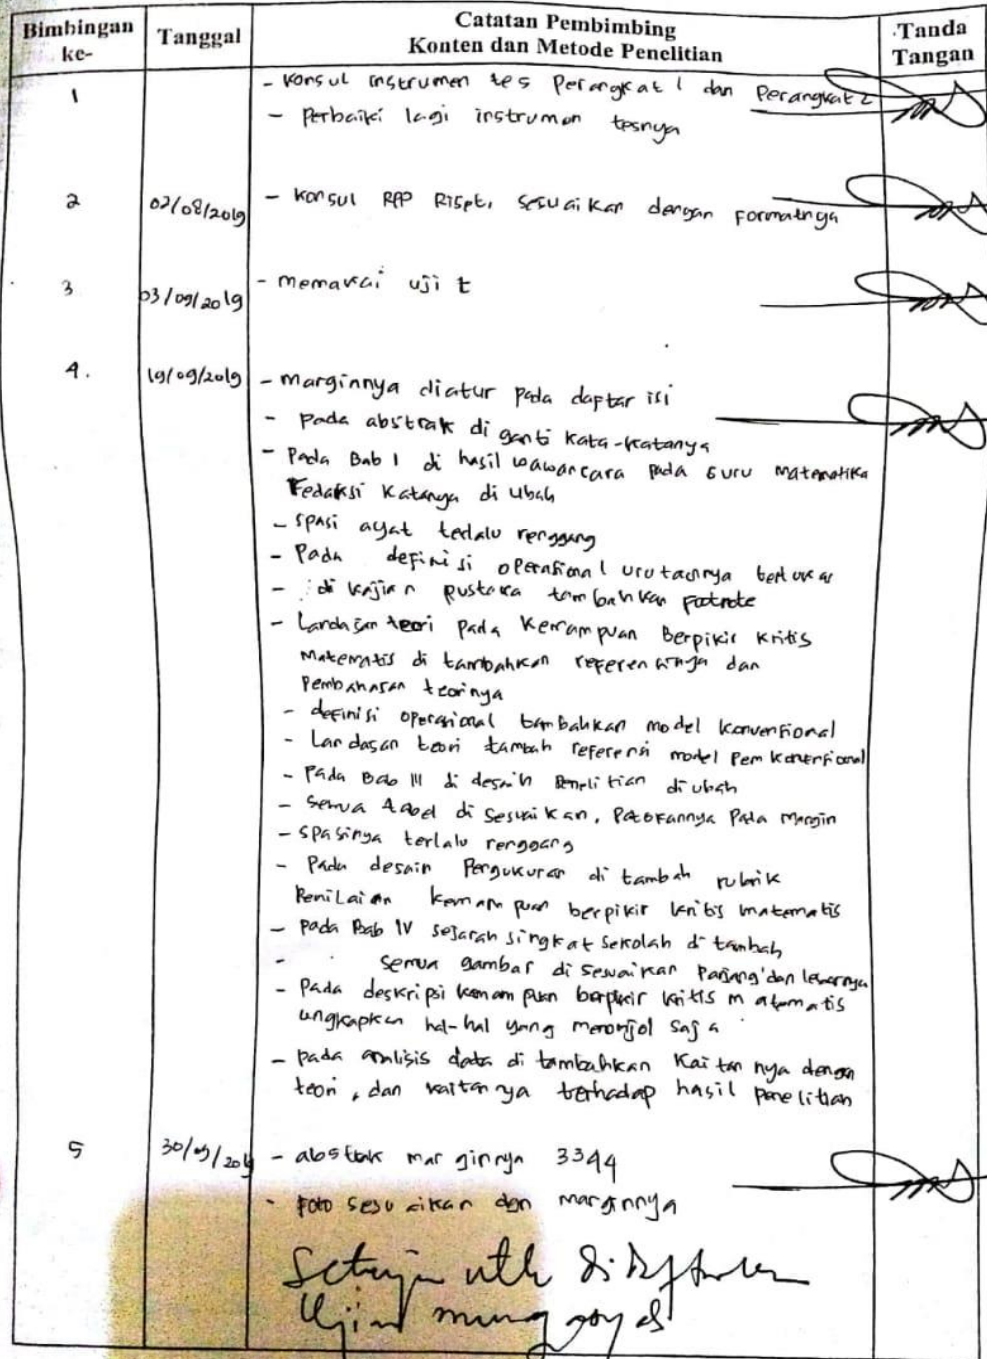 Bimbingan ke-
Tanggal
Catatan Pembimbing
Konten dan Metode Penelitian
Tanda Tangan
1
- Konsul instrumen tes Perangkat 1 dan Perangkat 2
- Perbaiki lagi instrumen tesnya
2
02/08/2019
- Konsul RPP Riset, sesuaikan dengan formatnya
3
03/09/2019
- memakai uji t
4.
19/09/2019
- marginnya diatur pada daftar isi
- pada abstrak di ganti kata-katanya
- Pada Bab I di hasil wawancara pada Guru Matematika
Redaksi katanya di ubah
- spasi ayat terlalu renggang
- Pada definisi operasional urutannya tertukar
- di kajian pustaka tambahkan footnote
- Landasan teori pada Kemampuan Berpikir Kritis
Matematis di tambahkan referensinya dan
Pembahasan teorinya
- definisi operasional tambahkan model konvensional
- Landasan teori tambah referensi model Pem konvensional
- Pada Bab III di desain Penelitian di ubah
- semua tabel di sesuaikan, Patokannya Pada Margin
- spasinya terlalu renggang
- Pada desain Pengukuran di tambah rubrik
Penilaian kemampuan berpikir kritis matematis
- pada Bab IV sejarah singkat sekolah di tambah
- semua gambar di sesuaikan Panjang dan lebarnya
- Pada deskripsi kemampuan berpikir kritis matematis
ungkapkan hal-hal yang menonjol saja
- pada analisis data di tambahkan Kaitannya dengan
teori, dan kaitannya terhadap hasil penelitian
5
30/09/2019
- abstrak marginnya 3344
- Foto sesuaikan dgn marginnya
Setuju utk didaftarkan
Ujian munaqasyah